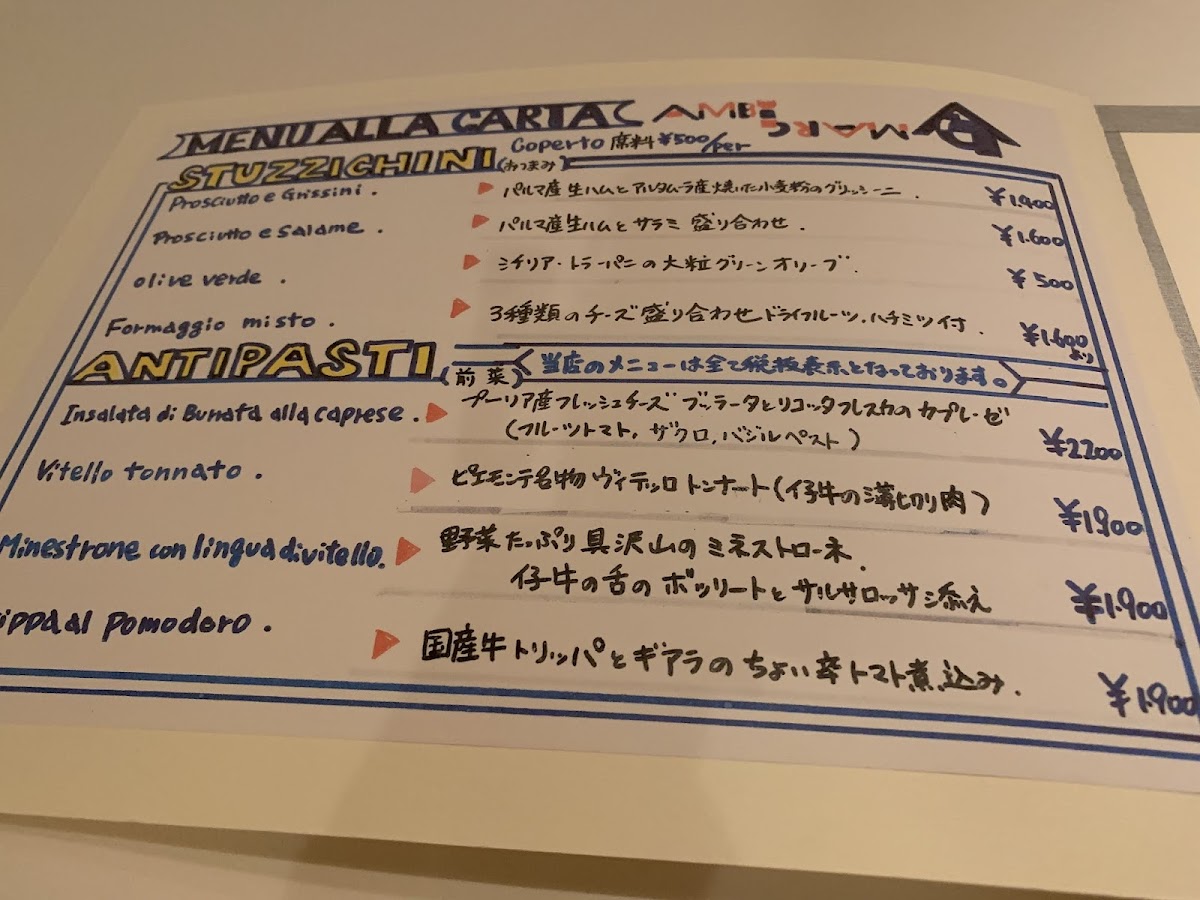 MENU ALLA CARTA AMBI MARC
STUZZICHINI (おつまみ) Coperto 席料 ¥500/per
Prosciutto e Grissini. パルマ産生ハムとアルタムーラ産焼いた小麦粉のグリッシーニ. ¥1.400
Prosciutto e Salame. パルマ産生ハムとサラミ 盛り合わせ. ¥1.600
olive verde. シチリア・トラーパニの大粒グリーンオリーブ. ¥500
Formaggio misto. 3種類のチーズ盛り合わせ、ドライフルーツ、ハチミツ付. ¥1.600より
ANTIPASTI (前菜) 当店のメニューは全て税抜表示となっております。
Insalata di Burrata alla caprese. プーリア産フレッシュチーズ ブッラータとリコッタフレスカの カプレーゼ
(フルーツトマト, ザクロ, バジルペスト) ¥2200
Vitello tonnato. ピエモンテ名物 ヴィテッロ トンナート(仔牛の薄切り肉) ¥1900
Minestrone con lingua di vitello. 野菜たっぷり具沢山のミネストローネ.
仔牛の舌の ボッリートとサルサロッサ添え ¥1.900
ippa al Pomodoro. 国産牛トリッパとギアラのちょい辛トマト煮込み. ¥1.900